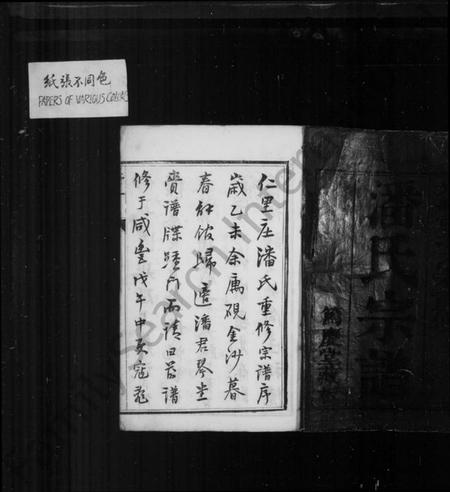 紙張不同色
PAPERS OF VARIOUS COLORS
仁里庄潘氏重修宗譜序
歲乙未余厲硯金沙暮
春飯歸遇潘君琴生
賫譜牒踵門而請曰吾譜
修于咸豐戊午中更寇氛
潘氏宗譜